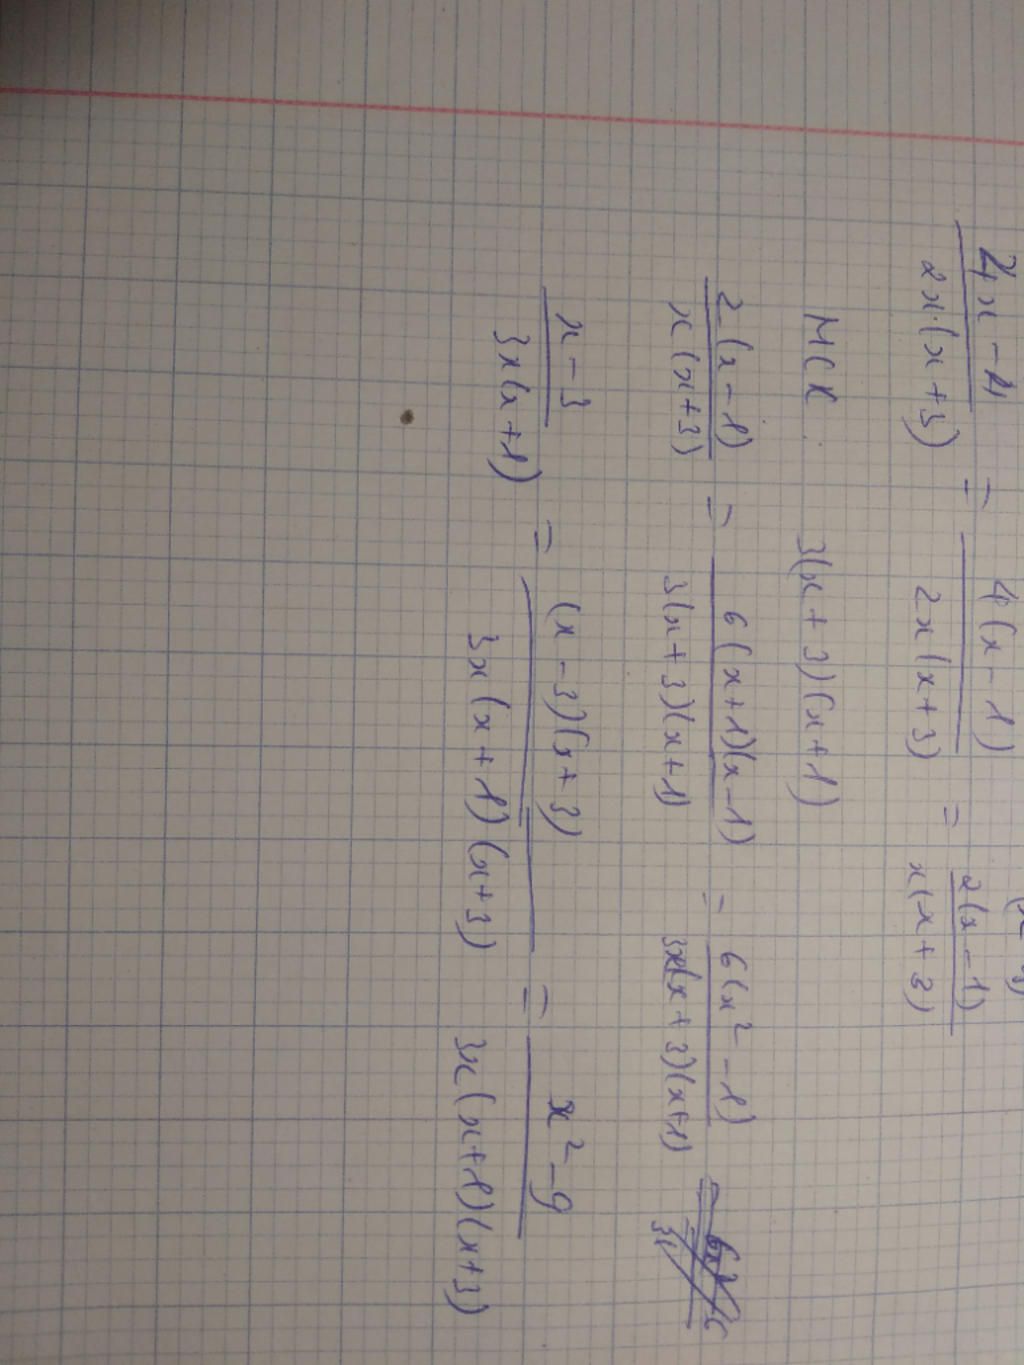 (4x-4)/(2x·(x+3)) = (4(x-1))/(2x(x+3)) = (2(x-1))/(x(x+3))
3(x+3)(x+1)
(2(x-1))/(x(x+3)) = (6(x+1)(x-1))/(3(x+3)(x+1)) = (6(x²-1))/(3x(x+3)(x+1))
(x-3)/(3x(x+1)) = ((x-3)(x+3))/(3x(x+1)(x+3)) = (x²-9)/(3x(x+1)(x+3))